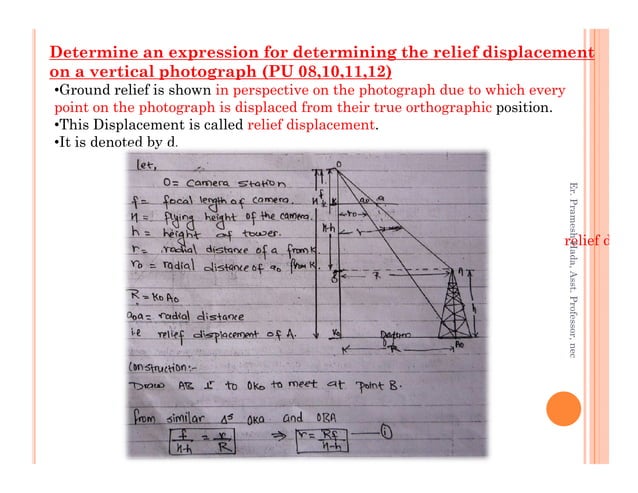 Determine an expression for determining the relief displacement
on a vertical photograph (PU 08,10,11,12)
•Ground relief is shown in perspective on the photograph due to which every
point on the photograph is displaced from their true orthographic position.
•This Displacement is called relief displacement.
•It is denoted by d.
let,
O= camera station
f= focal length of camera.
H= flying height of the camera.
h= height of tower.
r= radial distance of a from K.
r₀= radial distance of a₀ from K.
R=K₀A₀
a₀a= radial distance
i.e relief displacement of A.
O
f
H
K
a₀ a
r₀
r
H-h
B
R
A
h
K₀
Datum
A₀
R
Construction:-
Draw AB ⊥ to OK₀ to meet at point B.
from similar Δs OKa and OBA
f/H-h = r/R ⇒ r = Rf/H-h —(i)
relief d
Er. Pramesh Hada, Asst. Professor, nec